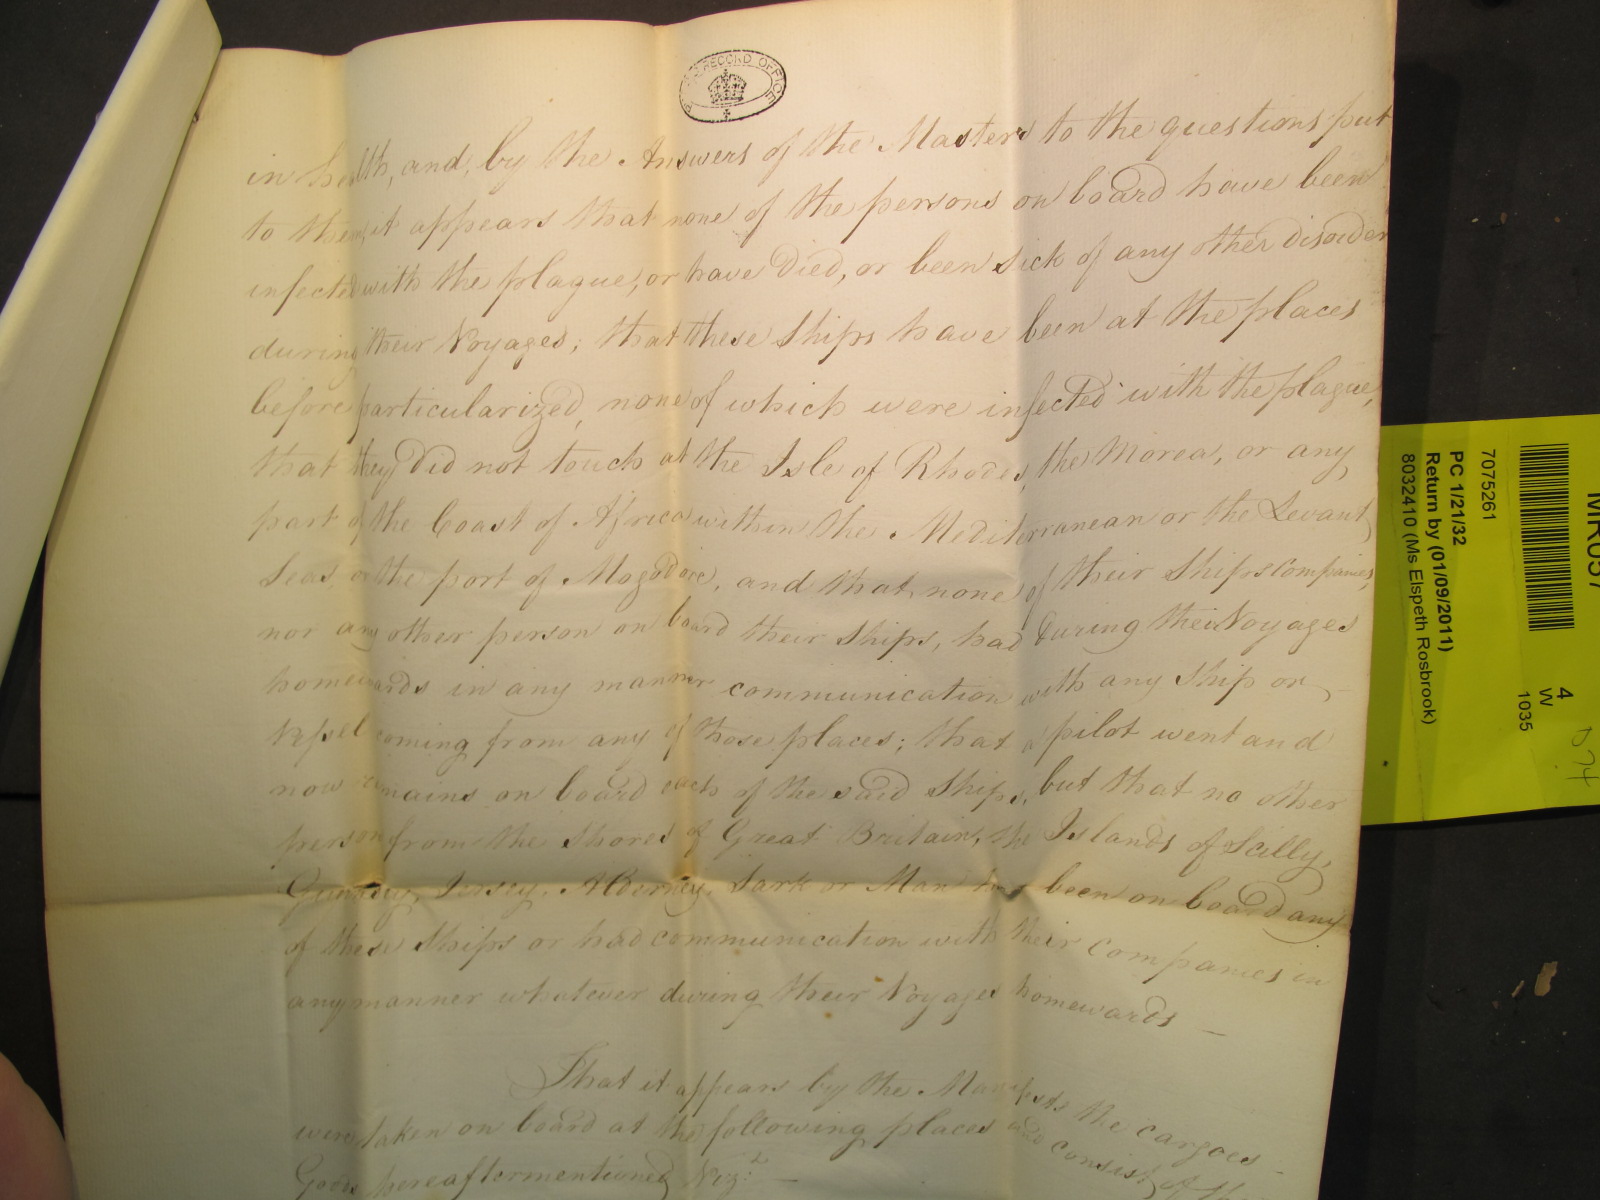 PUBLIC RECORD OFFICE
in health, and, by the Answers of the Masters to the questions put
to them, it appears that none of the persons on board have been
infected with the plague, or have died, or been sick of any other disorder
during their Voyages; that these Ships have been at the places
before particularized, none of which were infected with the plague,
that they did not touch at the Isle of Rhodes, the Morea, or any
part of the Coast of Africa within the Mediterranean or the Levant
Seas, or the port of Mogodore, and that none of their Ships Companies,
nor any other person on board their Ships, had during their Voyages
homewards in any manner communication with any Ship or
Vessel coming from any of those places; that a pilot went and
now remains on board each of the said Ships, but that no other
person from the Shores of Great Britain, the Islands of Scilly,
Guernsey, Jersey, Alderney, Sark or Man has been on board any
of these Ships or had communication with their Companies in
any manner whatever during their Voyages homewards —
That it appears by the Manifests the cargoes
were taken on board at the following places and consist of the
Goods hereaftermentioned Viz.t —
MR037
4
W
1035
7075261
PC 1/21/32
Return by (01/09/2011)
8032410 (Ms Elspeth Rosbrook)